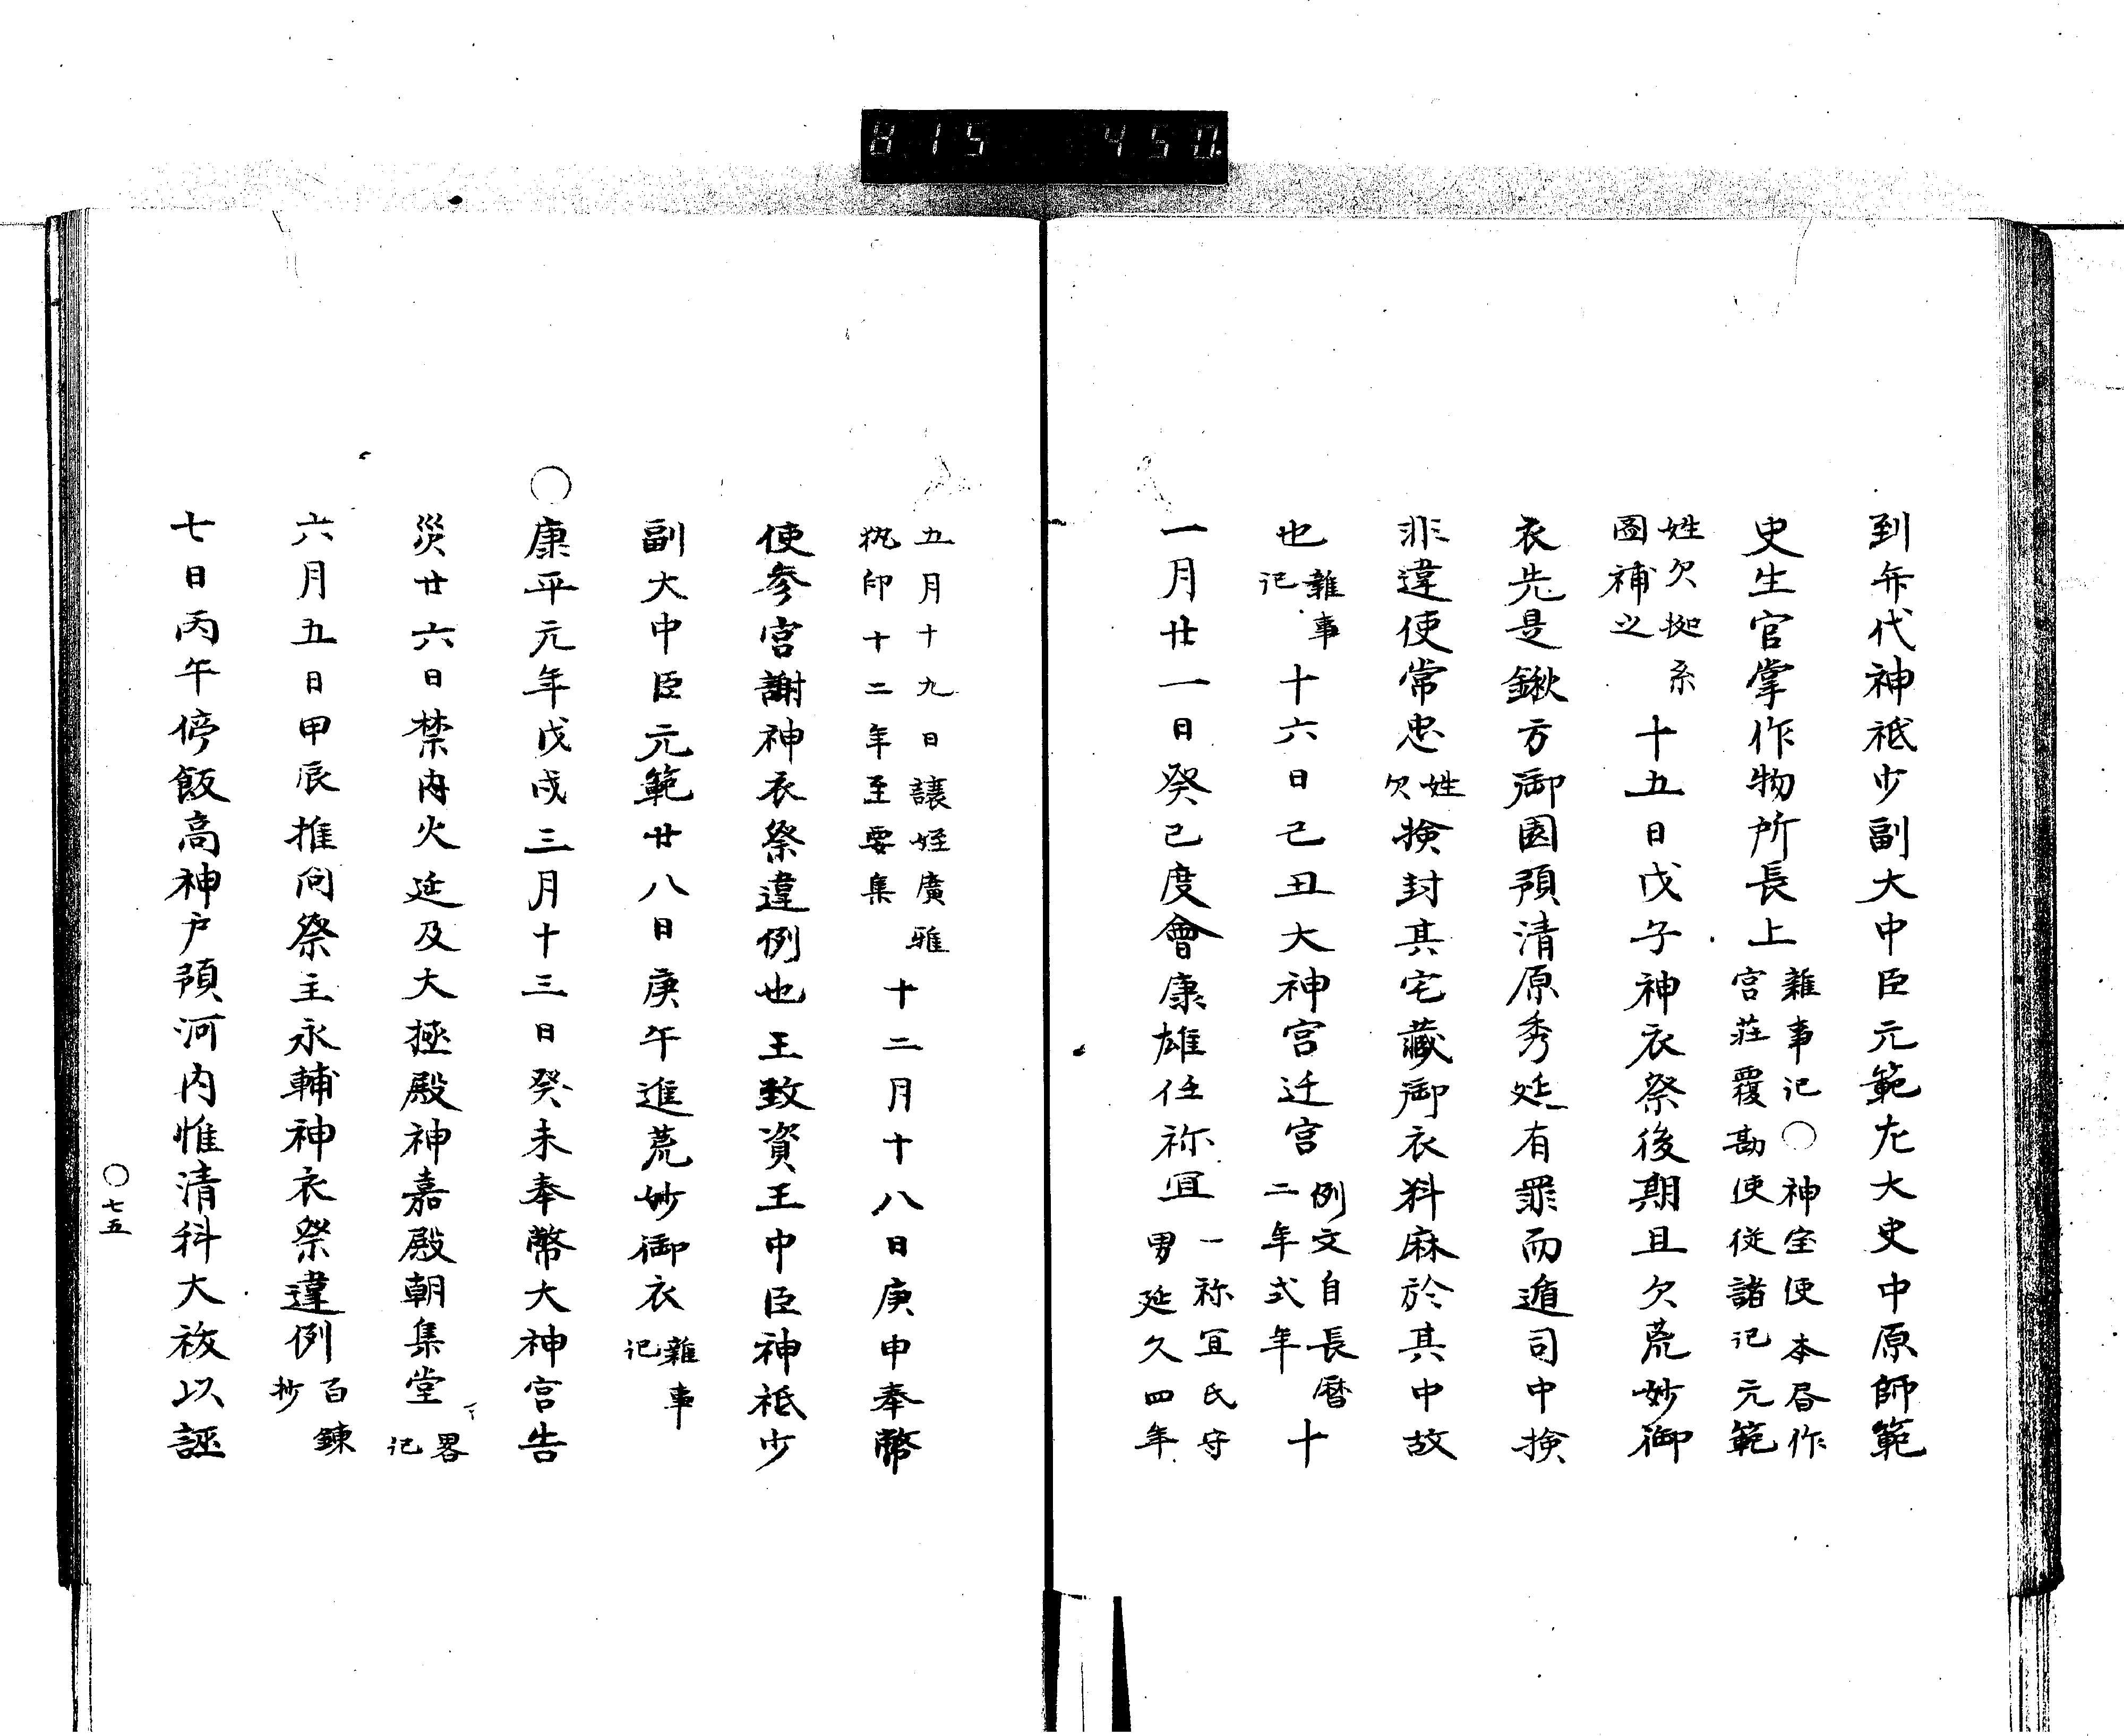 815 450
到弁代神祇少副大中臣元範左大史中原師範
史生官掌作物所長上 雜事記〇神宝使本㫪作
宮荘覆勘使従諸記元範
姓欠拠系
圖補之 十五日戊子神衣祭後期且欠荒妙御
衣先是鍬方御園預清原秀延有罪而遁司中検
非違使常忠 姓欠 検封其宅蔵御衣料麻於其中故
也 雜事記 十六日己丑大神宮迁宮 例文自長暦二年式年 十
一月廿一日癸巳度會康雄任祢宜 一祢宜氏守
男延久四年
五月十九日譲姪廣雅
執印十二年至要集 十二月十八日庚申奉幣
使参宮謝神衣祭違例也王致資王中臣神祇少
副大中臣元範廿八日庚午進荒妙御衣 雜事記
〇康平元年戊戌三月十三日癸未奉幣大神宮告
災廿六日禁内火延及大極殿神嘉殿朝集堂 畧記
六月五日甲辰推問祭主永輔神衣祭違例 百錬抄
七日丙午停飯高神户預河内惟清科大祓以誣
〇七五